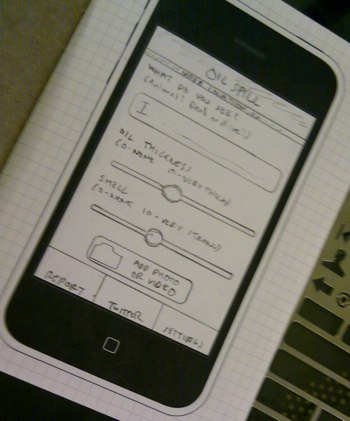 OIL SPILL
YOUR LOCATION
WHAT DO YOU SEE?
(Animals Dead or Alive?)
I
OIL THICKNESS
(0-NONE 10-VERY THICK)
SMELL
(0-NONE 10-VERY STRONG)
ADD PHOTO
OR VIDEO
REPORT
TWITTER
SETTINGS